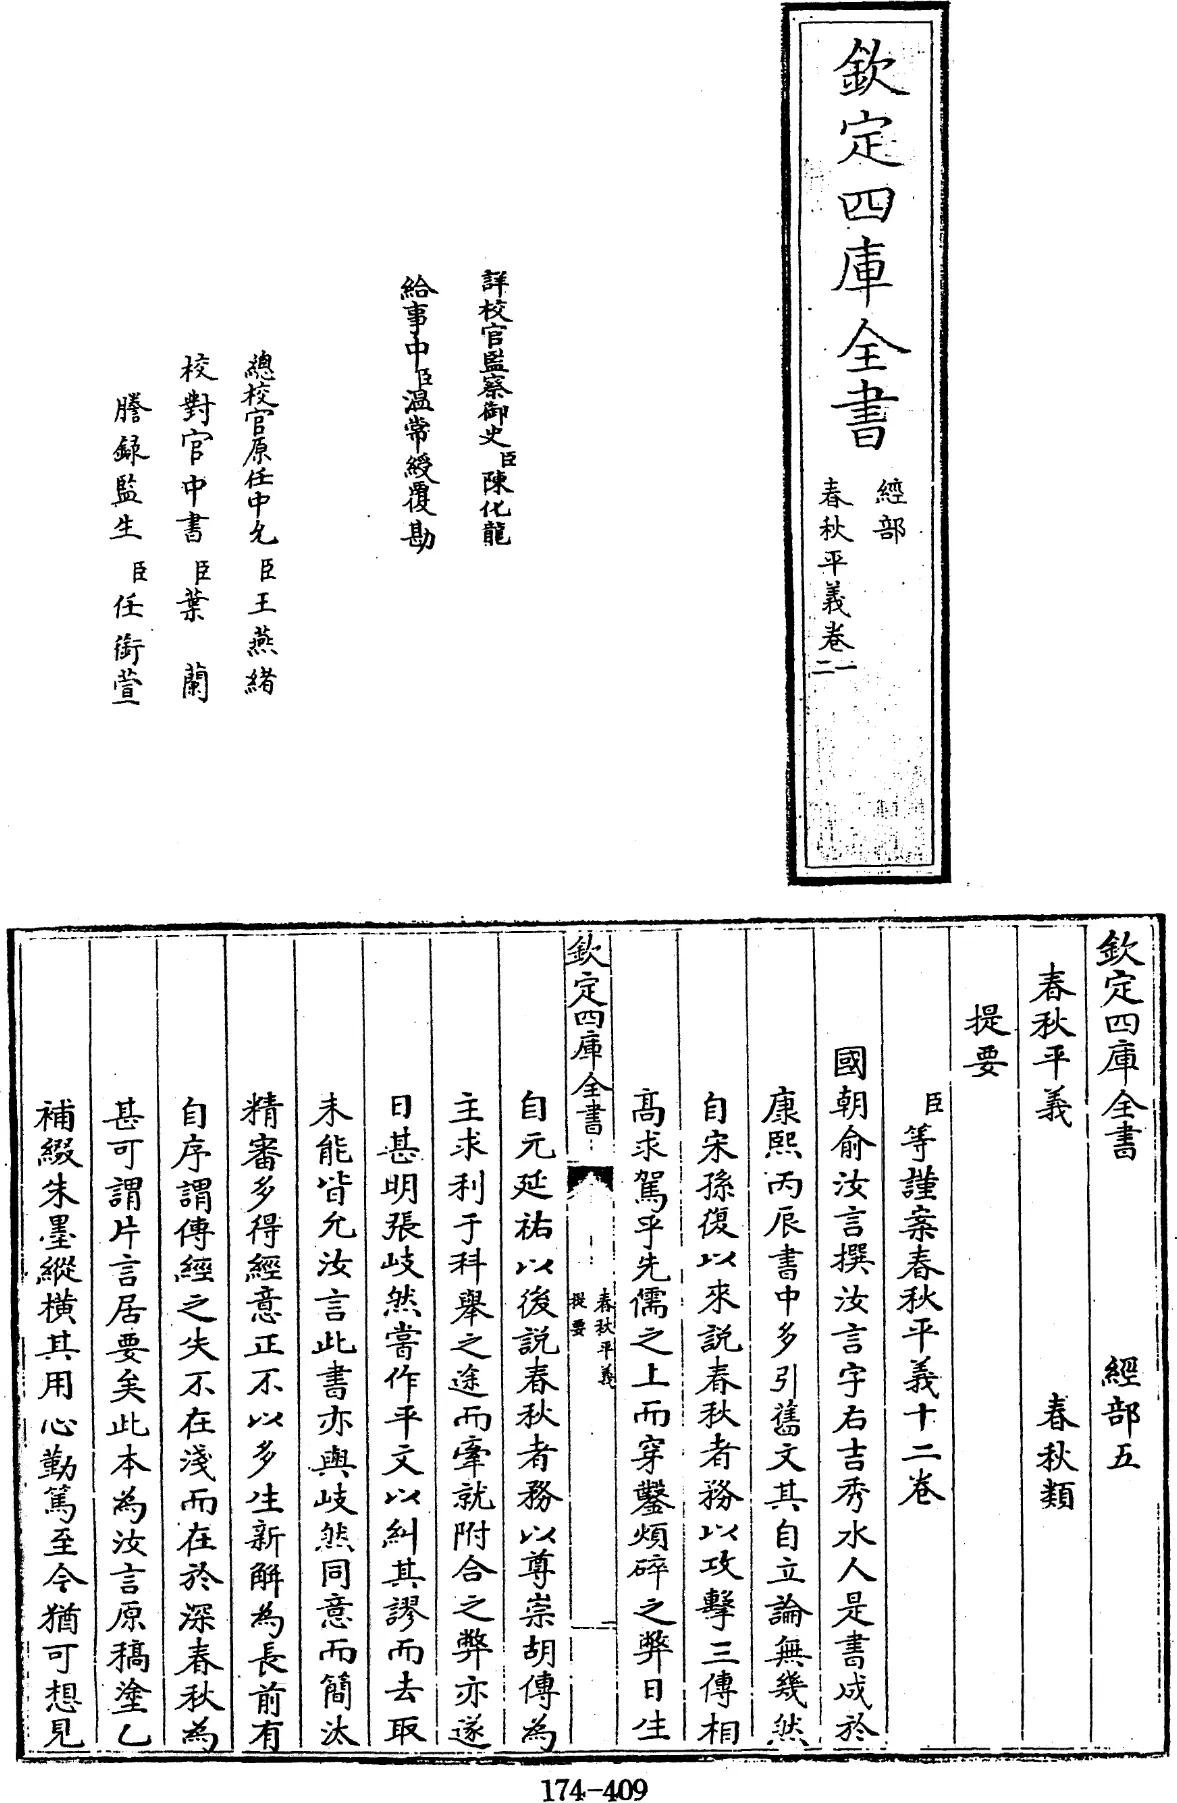 欽定四庫全書
經部
春秋平義卷一二
詳校官監察御史臣陳化龍
給事中臣溫常綬覆勘
總校官原任中允臣王燕緒
校對官中書臣葉蘭
謄錄監生臣任銜萱
欽定四庫全書 經部五
春秋平義 春秋類
提要
臣等謹案春秋平義十二卷
國朝俞汝言撰汝言字右吉秀水人是書成於
康熙丙辰書中多引舊文其自立論無幾然
自宋孫復以來說春秋者務以攻擊三傳相
高求駕乎先儒之上而穿鑿煩碎之弊日生
欽定四庫全書
春秋平義
提要
一
自元延祐以後說春秋者務以尊崇胡傳為
主求利于科舉之途而牽就附合之弊亦遂
日甚明張岐然嘗作平文以糾其謬而去取
未能皆允汝言此書亦與岐然同意而簡汰
精審多得經意正不以多生新解為長前有
自序謂傳經之失不在淺而在於深春秋為
甚可謂片言居要矣此本為汝言原稿塗乙
補綴朱墨縱橫其用心勤篤至今猶可想見
174-409